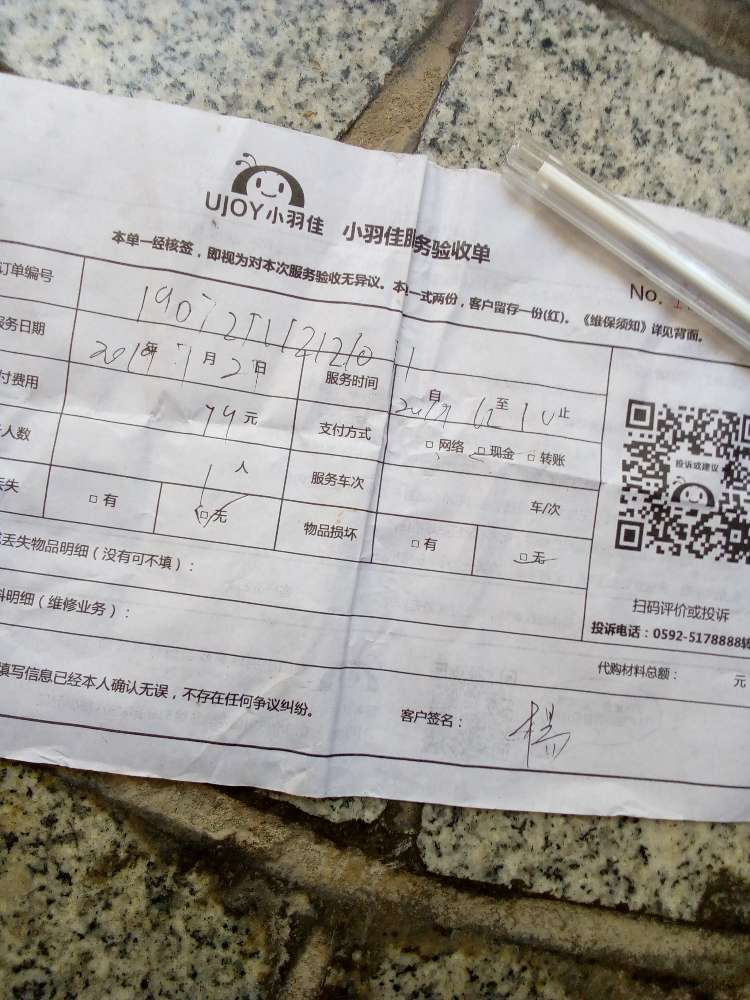 UJOY小羽佳 小羽佳服务验收单
本单一经核签，即视为对本次服务验收无异议。本单一式两份，客户留存一份(红)。《维保须知》详见背面。
No.
订单编号
服务日期 年 7月2日 服务时间 自 至 10 止
付费用 79元 支付方式 □网络 □现金 □转账
人数 1人 服务车次 车/次
丢失 □有 □无 物品损坏 □有 □无
丢失物品明细（没有可不填）：
料明细（维修业务）：
投诉或建议
扫码评价或投诉
投诉电话：0592-5178888转
代购材料总额： 元
填写信息已经本人确认无误，不存在任何争议纠纷。 客户签名： 楊